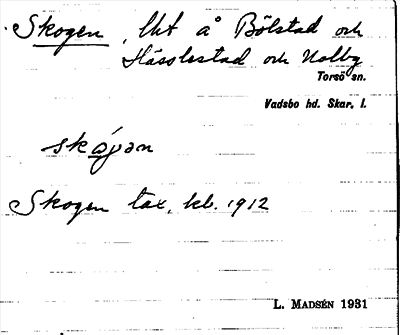 Skogen, lht å Bölstad och
Hässlestad och Nolby
Torsö sn.
Vadsbo hd. Skar. l.
skógən
Skogen tax. kb. 1912
L. MADSÉN 1931